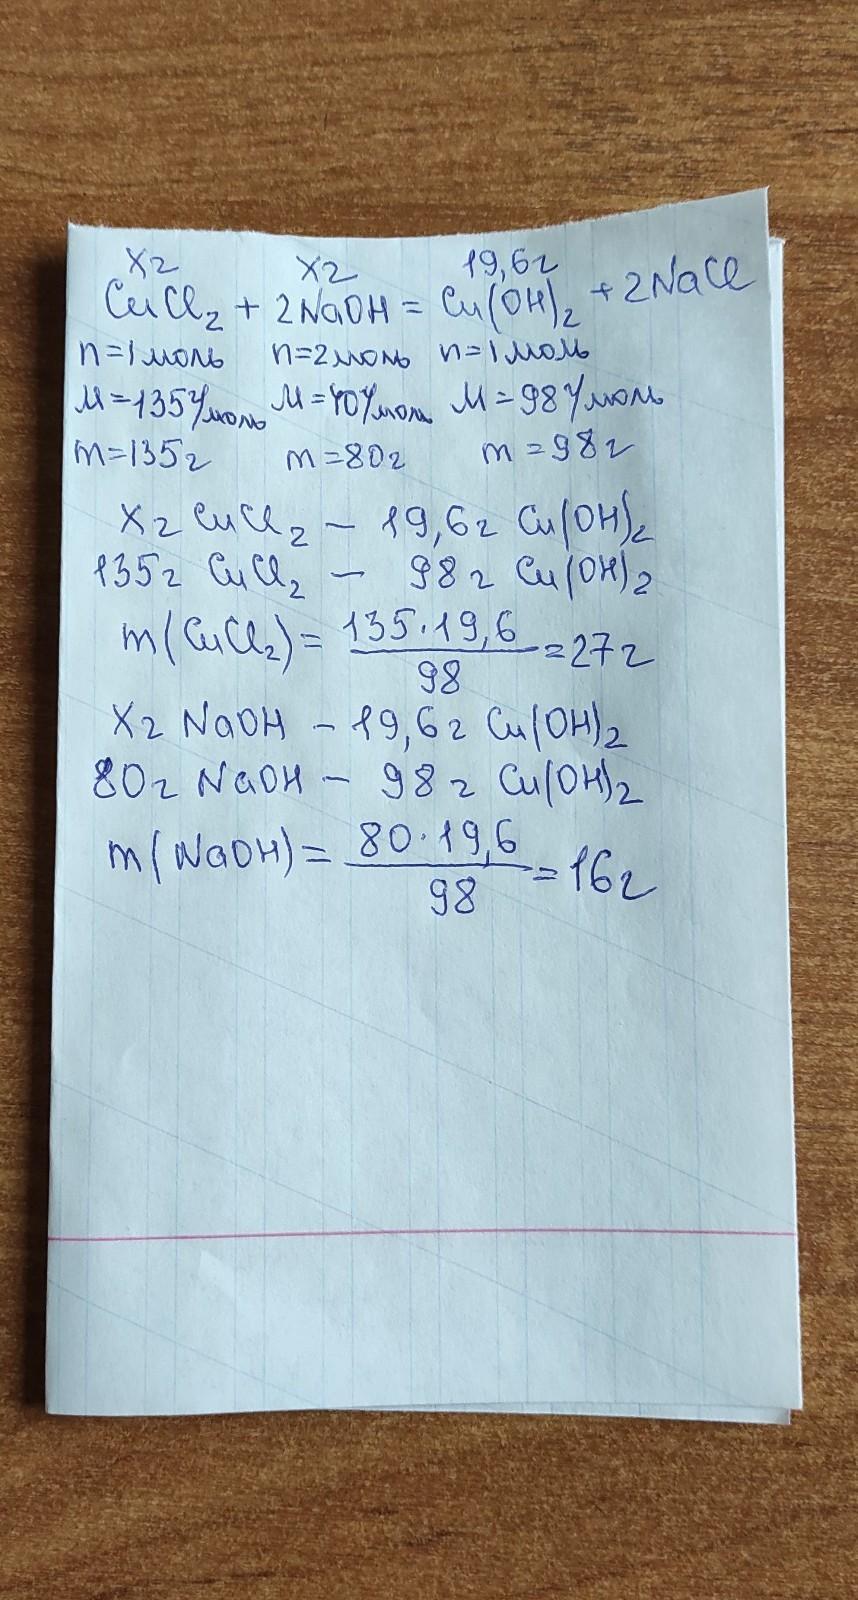 xг xг 19,6г
CuCl₂ + 2NaOH = Cu(OH)₂ + 2NaCl
n=1моль n=2моль n=1моль
M=135г/моль M=40г/моль M=98г/моль
m=135г m=80г m=98г
xг CuCl₂ – 19,6г Cu(OH)₂
135г CuCl₂ – 98г Cu(OH)₂
m(CuCl₂) = 135·19,6/98 = 27г
xг NaOH – 19,6г Cu(OH)₂
80г NaOH – 98г Cu(OH)₂
m(NaOH) = 80·19,6/98 = 16г